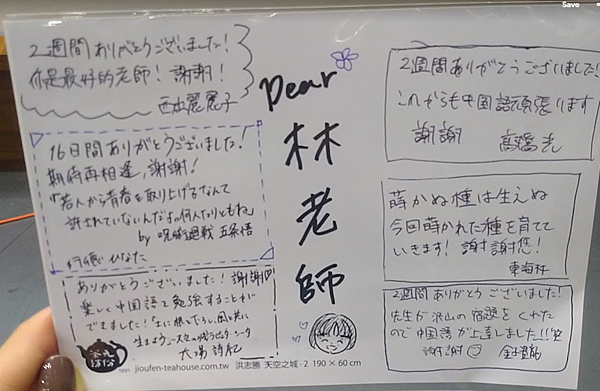 Save
2週間ありがとうございました!
你是最好的老師!謝謝!
西出麗麗子
16日間ありがとうございました!
期待再相逢,謝謝!
「若人から青春を取り上げるなんて
許されていないんだよ何人たりともね」
by 呪術廻戦 五条悟
ひなた
ありがとうございました!謝謝♡
楽しく中国語を勉強することが
できました!
大場
Dear
林老師
2週間ありがとうございました!
これからも中国語頑張ります
謝謝 高橋光
蒔かぬ種は生えぬ
今回蒔かれた種を育てて
いきます!謝謝您!
東海林
2週間ありがとうございました!
先生が沢山の宿題をくれた
ので中国語が上達しました!!
谢谢
jioufen-teahouse.com.tw 洪志勝 天空之城・2 190 × 60 cm